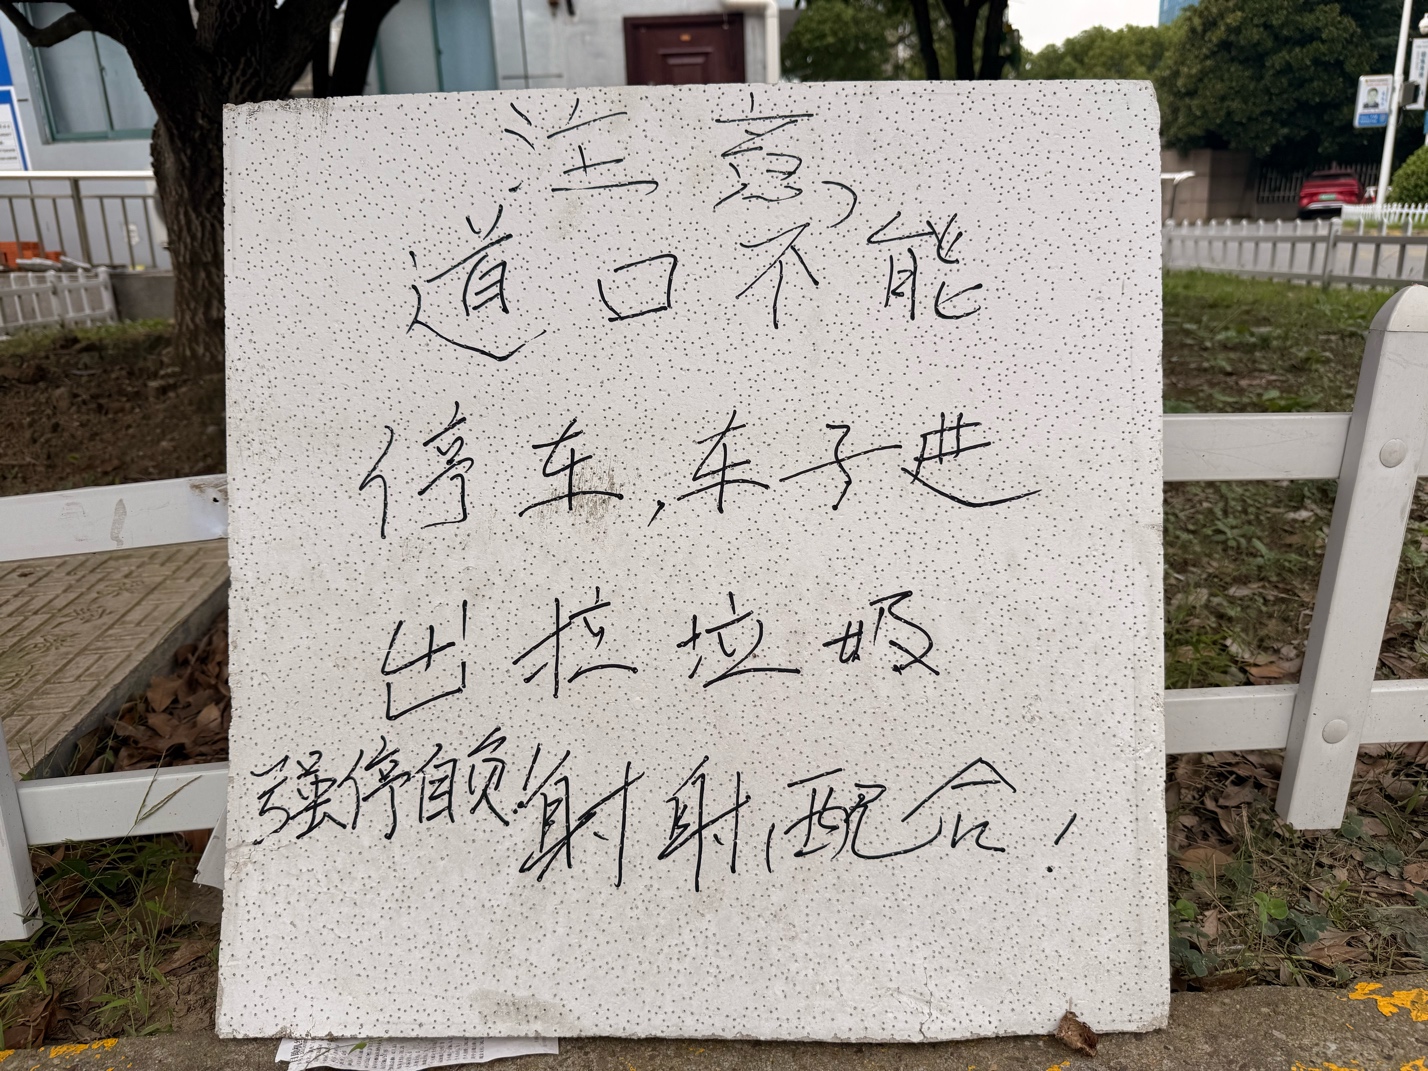 注意,
道口不能
停车,车子进
出拉垃圾
强停自负!射射配合!